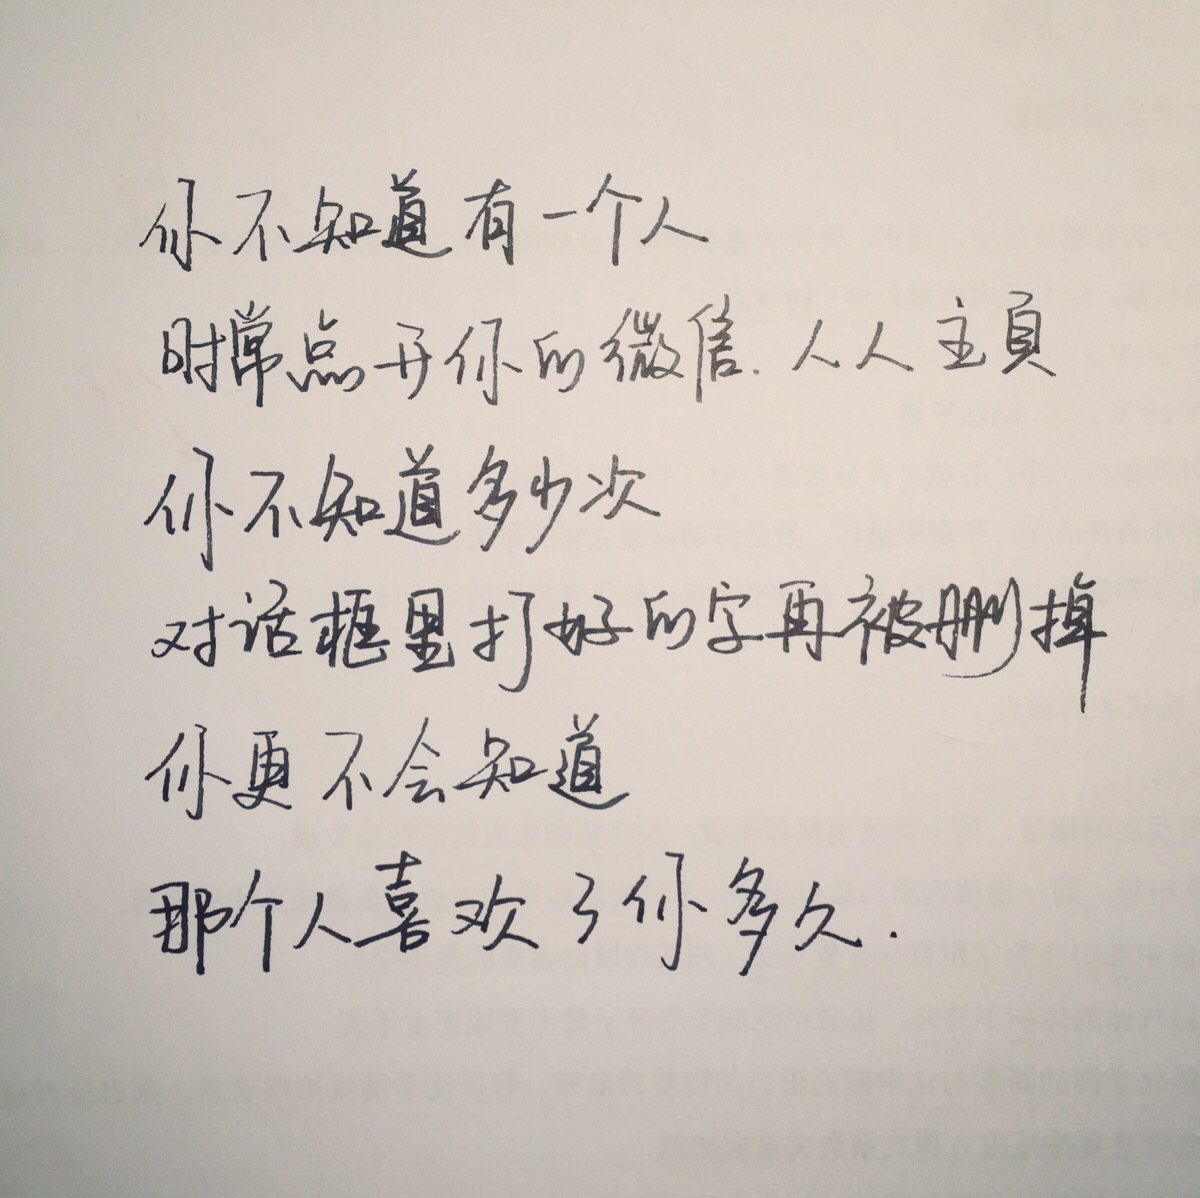 你不知道有一个人
时常点开你的微信.人人主頁
你不知道多少次
对话框里打好的字再被删掉
你更不会知道
那个人喜欢了你多久.